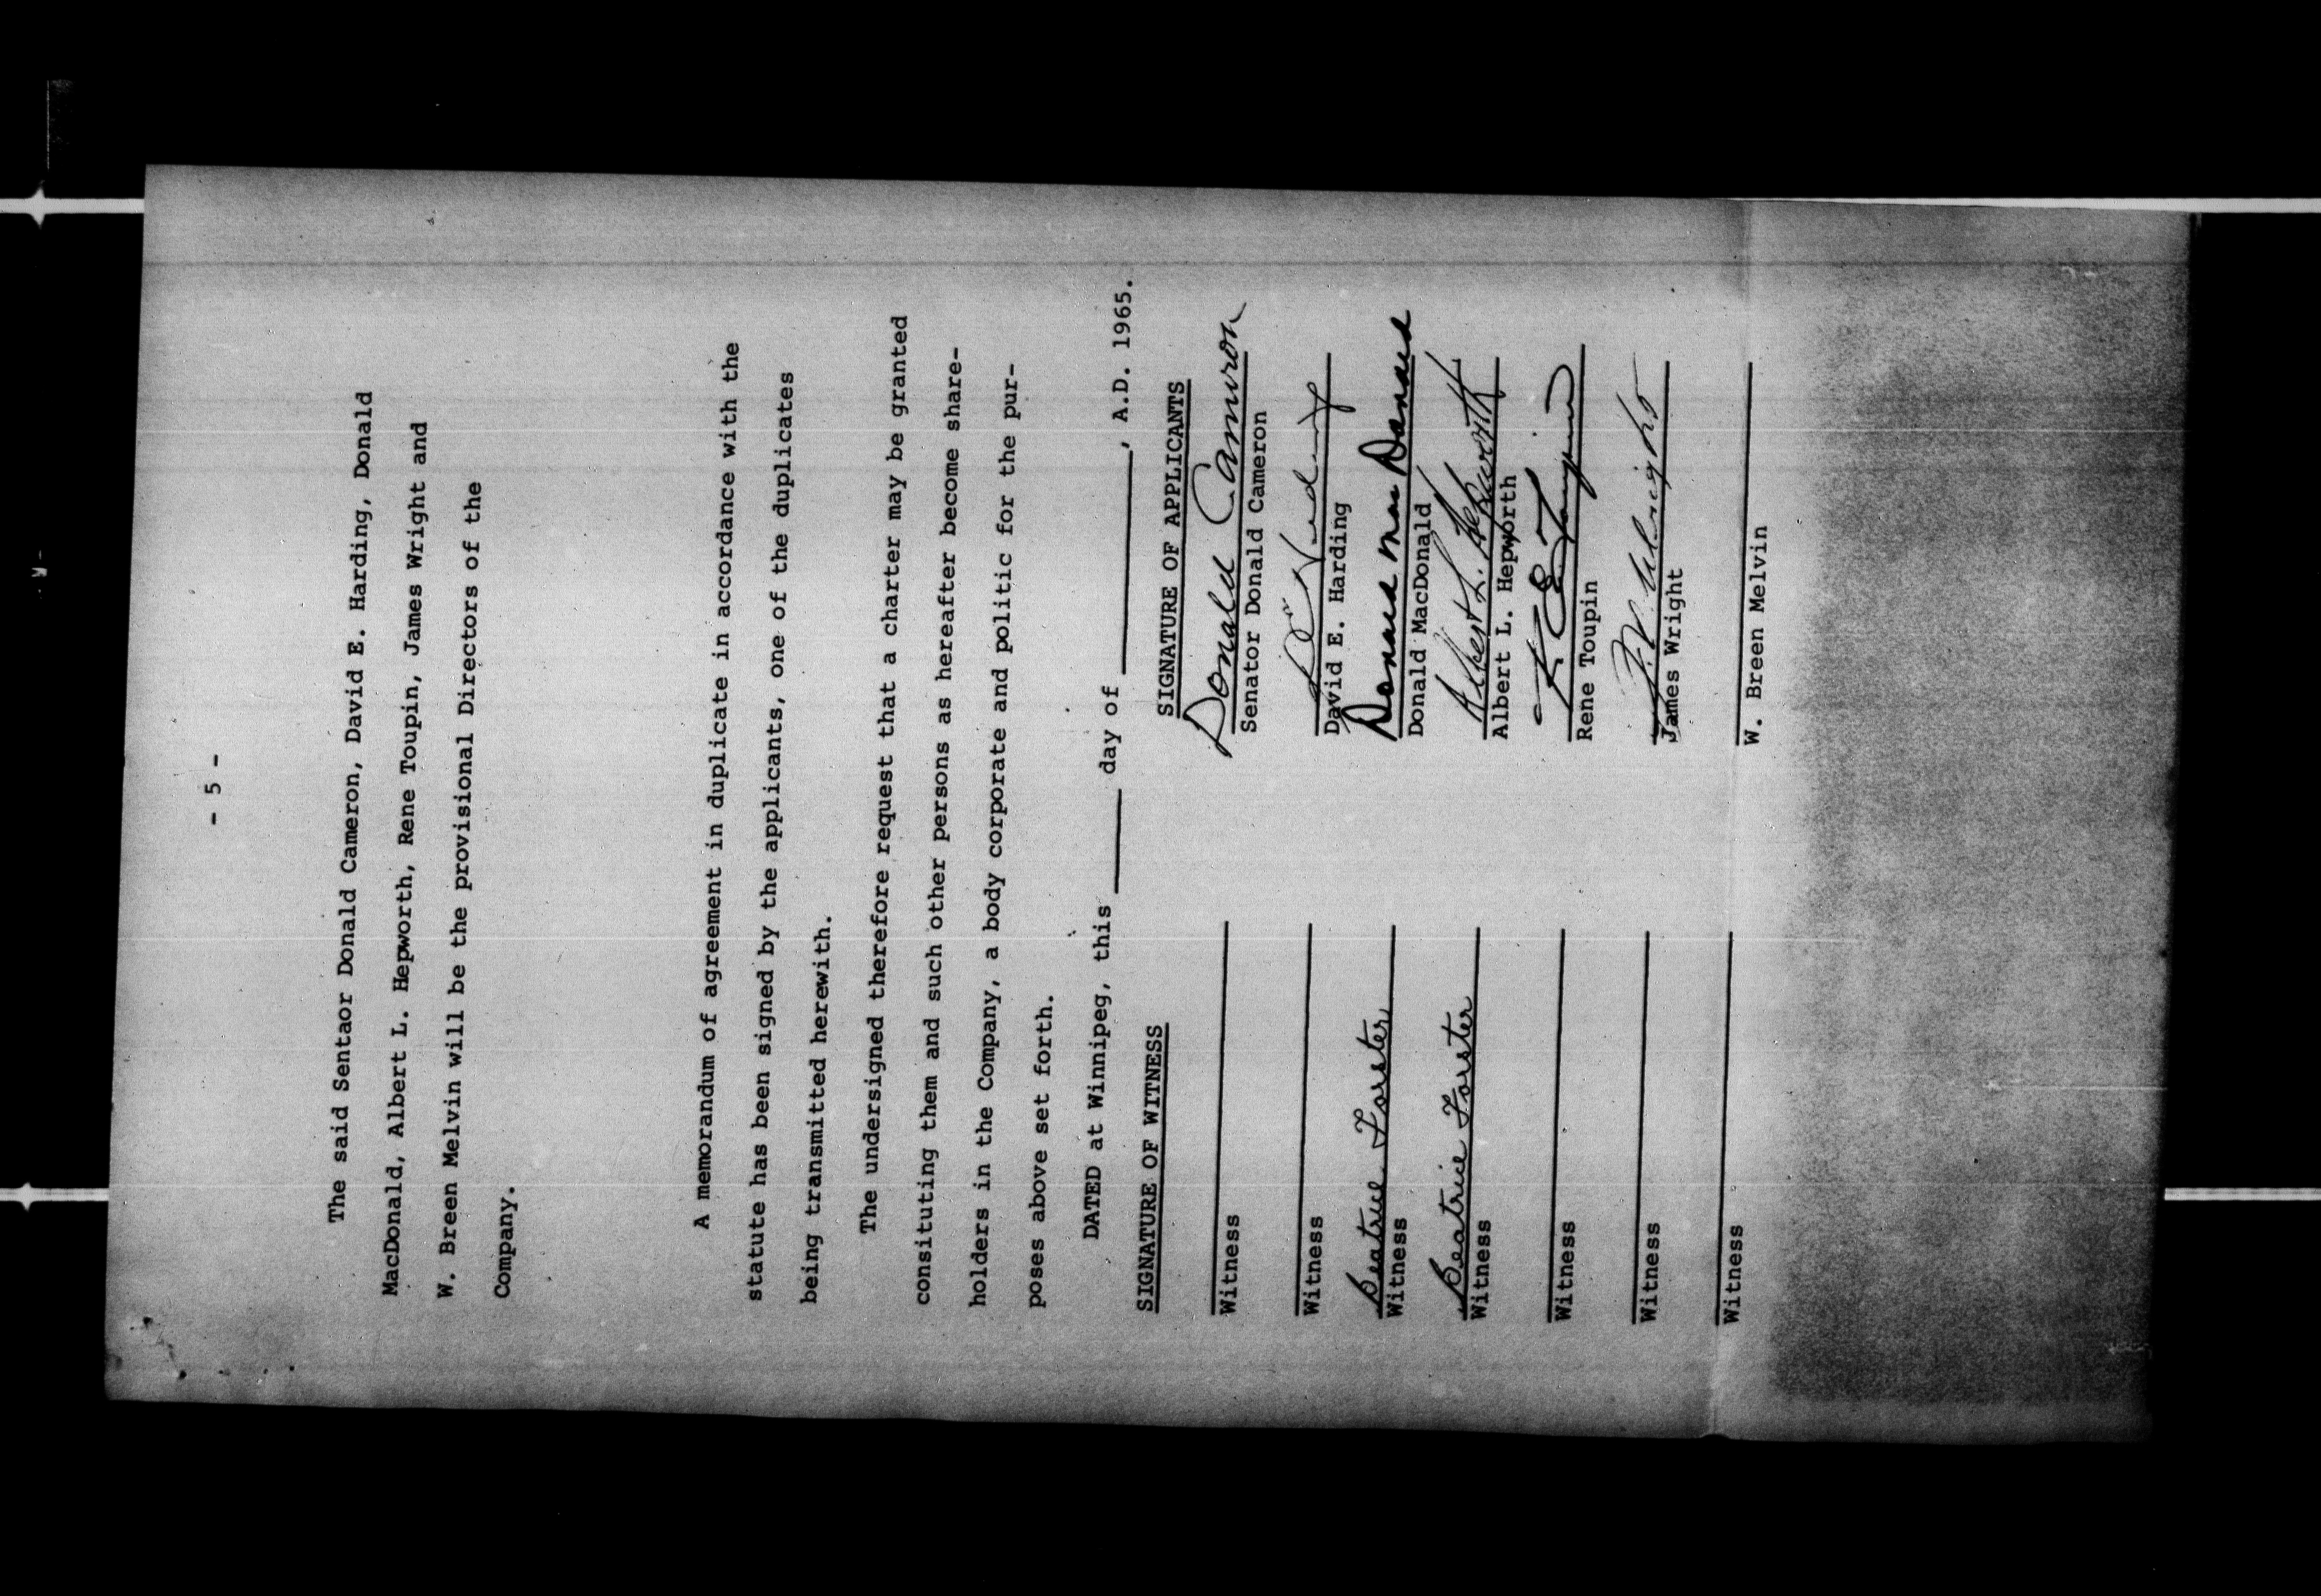 - 5 -
The said Sentaor Donald Cameron, David E. Harding, Donald
MacDonald, Albert L. Hepworth, Rene Toupin, James Wright and
W. Breen Melvin will be the provisional Directors of the
Company.
A memorandum of agreement in duplicate in accordance with the
statute has been signed by the applicants, one of the duplicates
being transmitted herewith.
The undersigned therefore request that a charter may be granted
consituting them and such other persons as hereafter become share-
holders in the Company, a body corporate and politic for the pur-
poses above set forth.
DATED at Winnipeg, this ______ day of ____________, A.D. 1965.
SIGNATURE OF WITNESS SIGNATURE OF APPLICANTS
Donald Cameron
Witness Senator Donald Cameron
Witness David E. Harding
Beatrice Forster Donald MacDonald
Witness Donald MacDonald
Beatrice Forster Albert L. Hepworth
Witness Albert L. Hepworth
R E Toupin
Witness Rene Toupin
Wright
Witness James Wright
Witness W. Breen Melvin